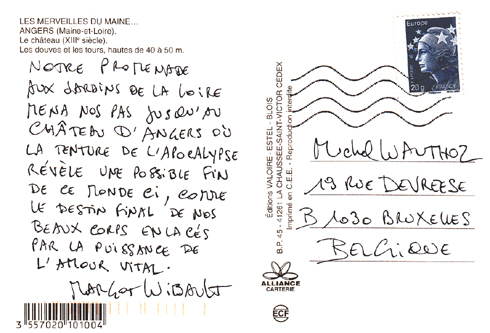 LES MERVEILLES DU MAINE...
ANGERS (Maine-et-Loire).
Le château (XIIIe siècle).
Les douves et les tours, hautes de 40 à 50 m.
NOTRE PROMENADE
AUX JARDINS DE LA LOIRE
MENA NOS PAS JUSQU'AU
CHÂTEAU D'ANGERS OÙ
LA TENTURE DE L'APOCALYPSE
RÉVÈLE UNE POSSIBLE FIN
DE CE MONDE CI, COMME
LE DESTIN FINAL DE NOS
BEAUX CORPS ENLACÉS
PAR LA PUISSANCE DE
L'AMOUR VITAL.
MARGOT WIBAULT
3 557020 101004
Editions VALOIRE-ESTEL - BLOIS
B.P. 45 - 41261 LA CHAUSSÉE-SAINT-VICTOR CEDEX
Imprimé en C.E.E. - Reproduction interdite
Europe
20g
FRANCE
Michel WAUTHOZ
19 RUE DEVREESE
B 1030 BRUXELLES
BELGIQUE
ALLIANCE
CARTERIE
ECF